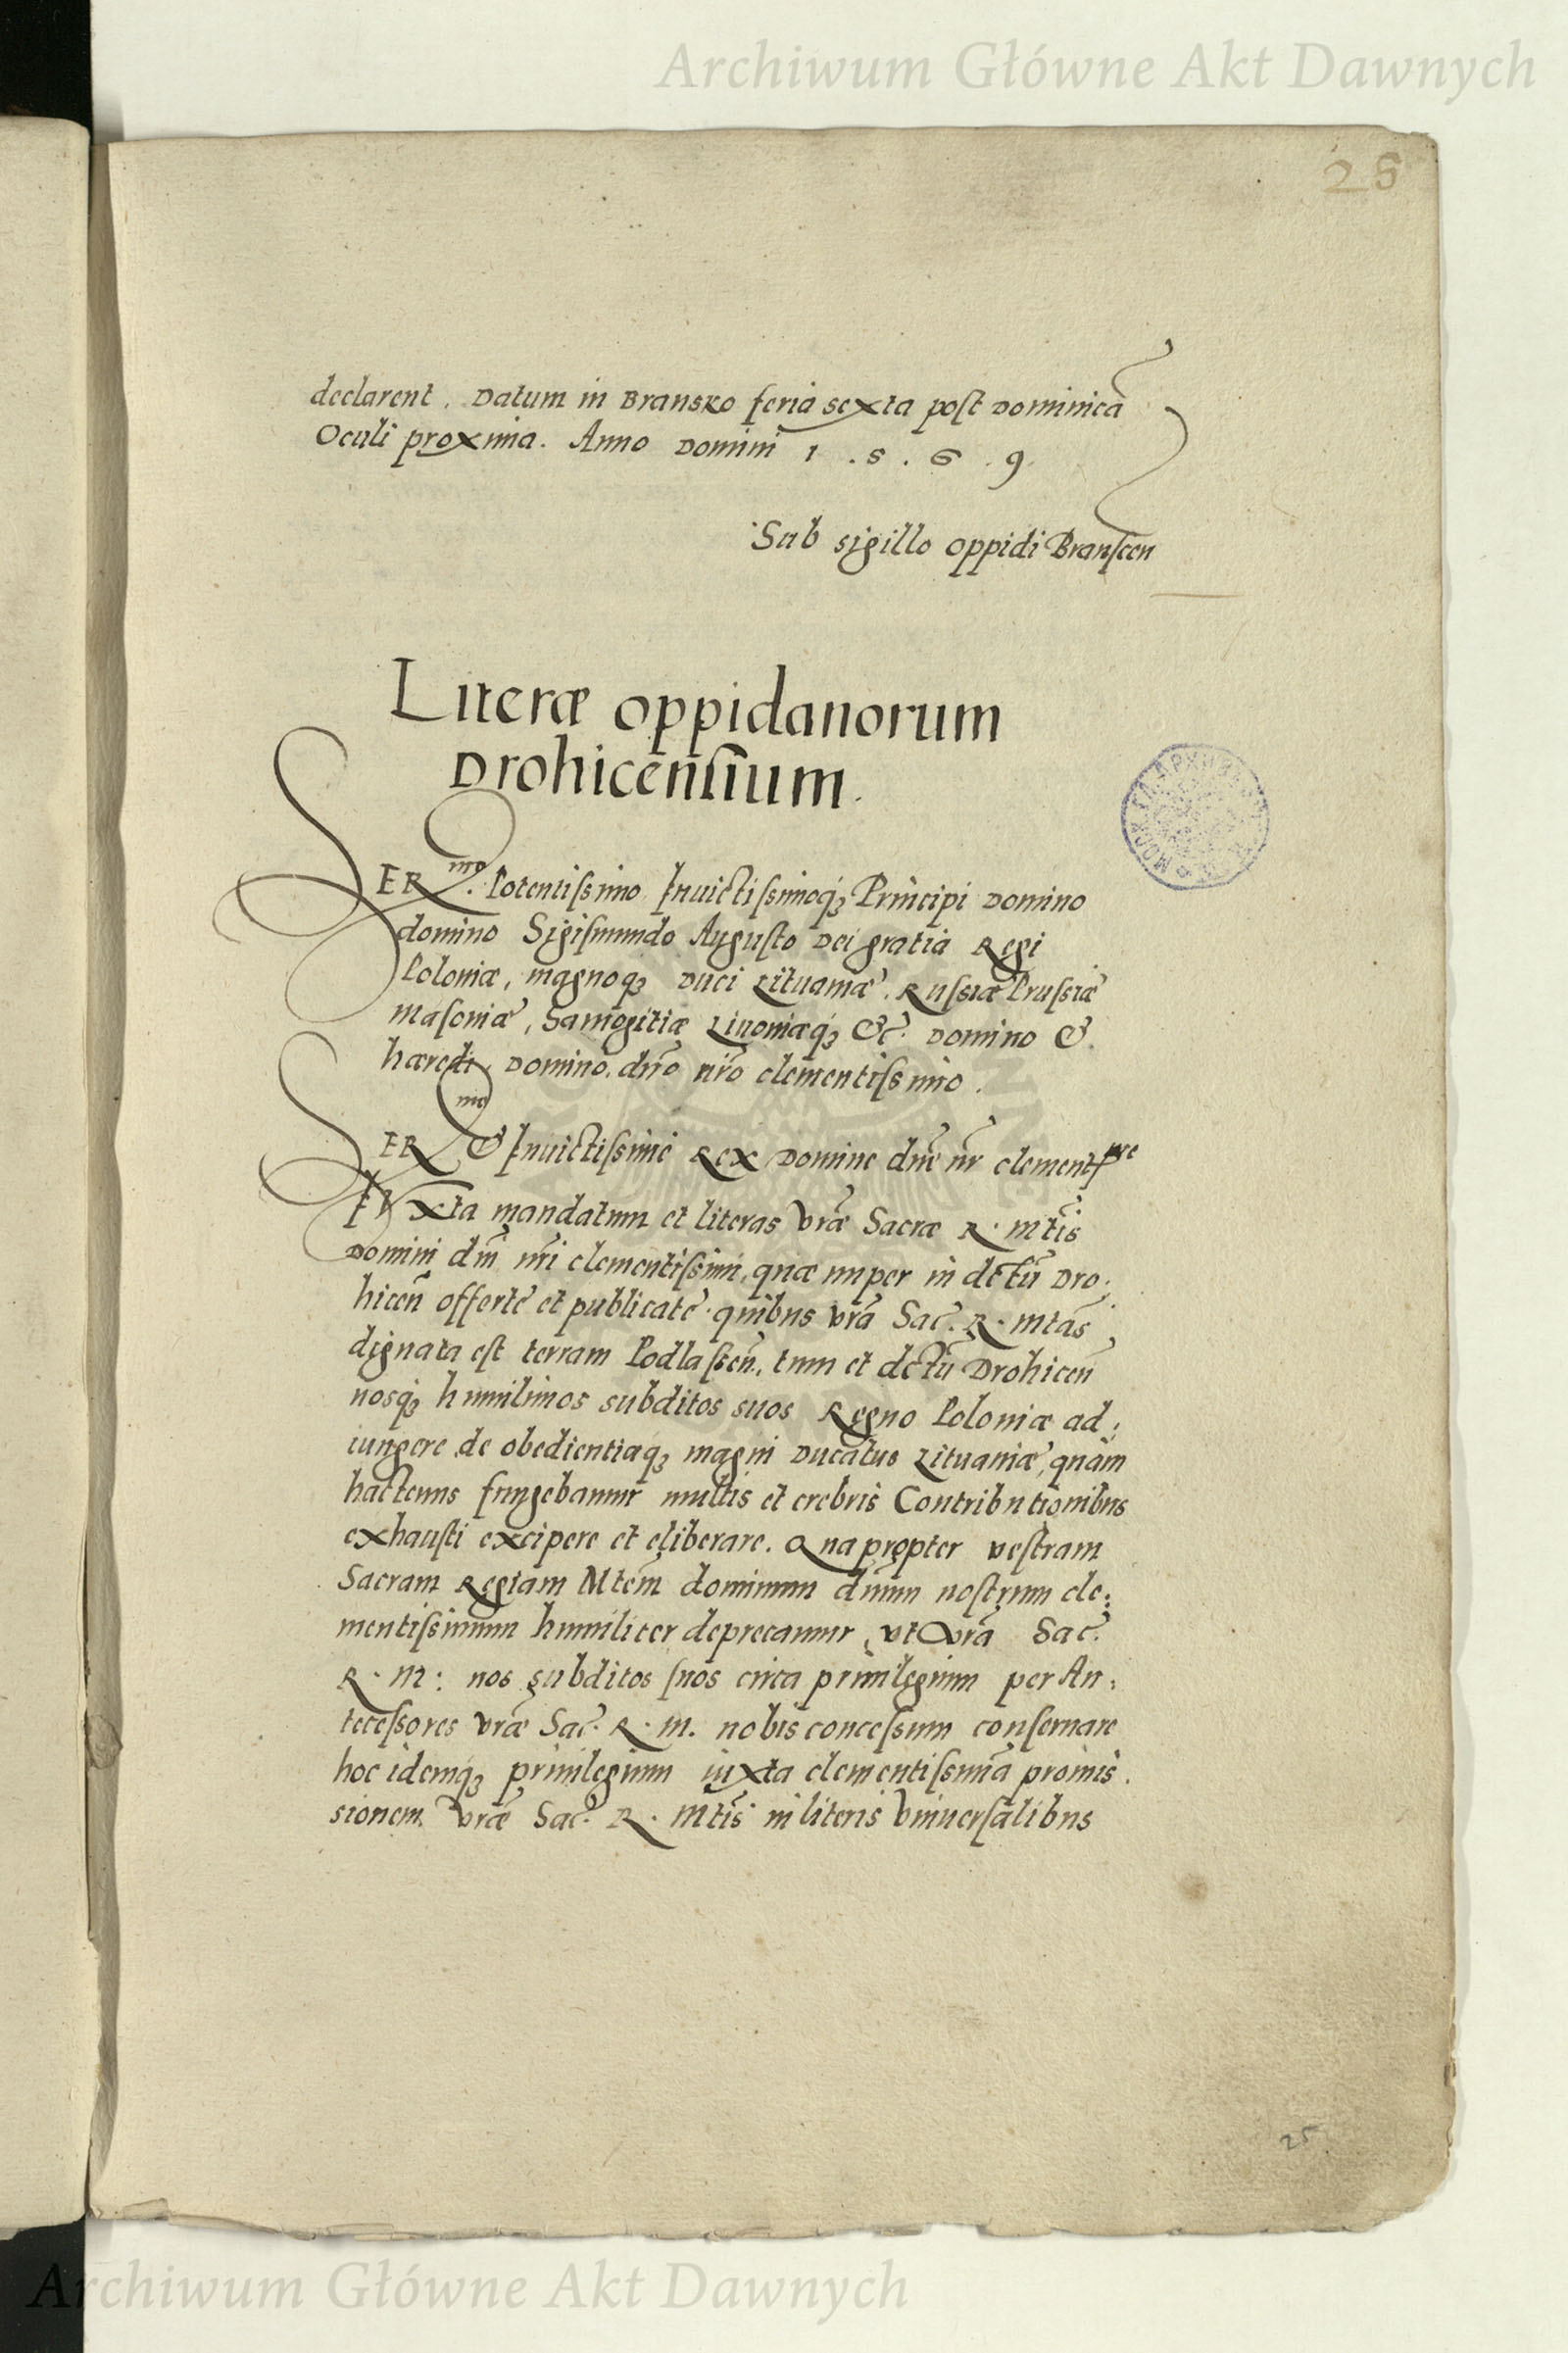 Archiwum Główne Akt Dawnych
25
declarent. Datum in Bransko feria sexta post Dominicā
Oculi proxima. Anno Domini 1.5.6.9.
Sub sigillo oppidi Branscen
Literæ oppidanorum
Drohicensium.
SERmo. Potentissimo Inuictissimoq₃ Principi Domino
domino Sigismundo Augusto Dei gratia Regi
Poloniæ, magnoq₃ Duci Lituaniæ, Russiæ Prussiæ
Masoniæ, Samogitiæ Liuoniæq₃ &c. Domino &
hæredi Domino. dn̄o nr̄o clementissimo.
SERme & Inuictissime Rex Domine dn̄e nr̄ clement
Iuxta mandatum et literas vr̄æ Sacræ R. Mtis
Domini dn̄i nr̄i clementissimi, quæ nuper in dctū Dro:
hicen̄ offerte et publicate. quibus vr̄a Sac. R. Mtas
dignata est terram Podlascen̄, tum et dctū Drohicen̄
nosq₃ humilimos subditos suos Regno Poloniæ ad:
iungere de obedientiaq₃ magni Ducatus Lituaniæ, quam
hactenus fungebamur multis et crebris Contributionibus
exhausti excipere et eliberare. Quapropter vestram
Sacram Regiam Mtem dominum dn̄um nostrum cle:
mentissimum humiliter deprecamur, vt vr̄a Sac.
R. M: nos subditos suos circa priuilegium per An:
tecessores vr̄æ Sac. R. M. nobis concessum conseruare
hoc idemq₃ priuilegium iuxta clementissimā promis:
sionem vr̄æ Sac. R. Mtis in literis vniuersalibus
25
Archiwum Główne Akt Dawnych